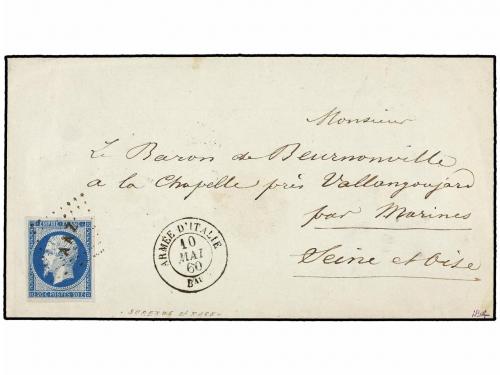 Monsieur
Le Baron de Beurnonville
a la Chapelle près Vallangoujard
par Marines
Seine et Oise
EMPIRE FRANC
20 C POSTES 20 C
ARMÉE D'ITALIE
10
MAI
60
Bau